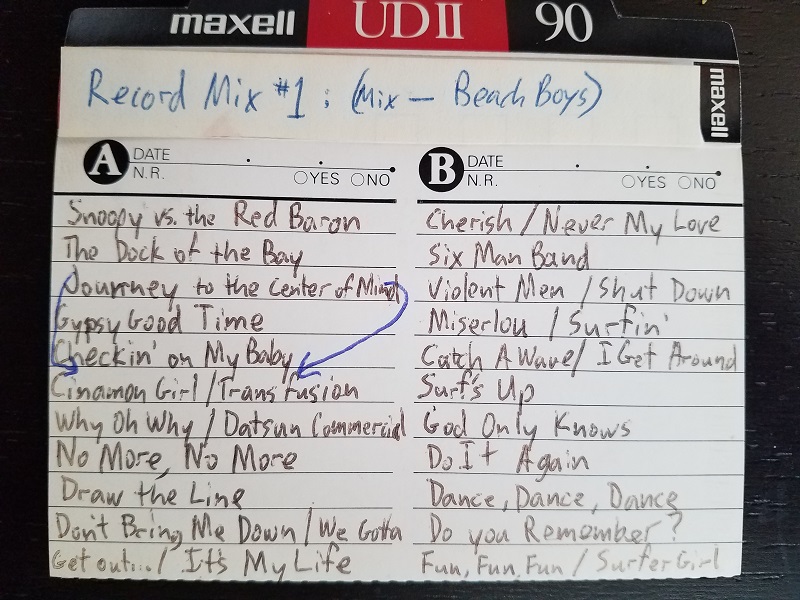 maxell UD II 90
Record Mix #1: (Mix — Beach Boys)
maxell
A DATE
N.R. YES NO
Snoopy vs. the Red Baron
The Dock of the Bay
Journey to the Center of Mind
Gypsy Good Time
Checkin' on My Baby
Cinamon Girl / Trans Fusion
Why Oh Why / Datsun Commercial
No More, No More
Draw the Line
Don't Bring Me Down / We Gotta
Get out... / It's My Life
B DATE
N.R. YES NO
Cherish / Never My Love
Six Man Band
Violent Men / Shut Down
Miserlou / Surfin'
Catch A Wave / I Get Around
Surf's Up
God Only Knows
Do It Again
Dance, Dance, Dance
Do you Remember?
Fun, Fun, Fun / Surfer Girl